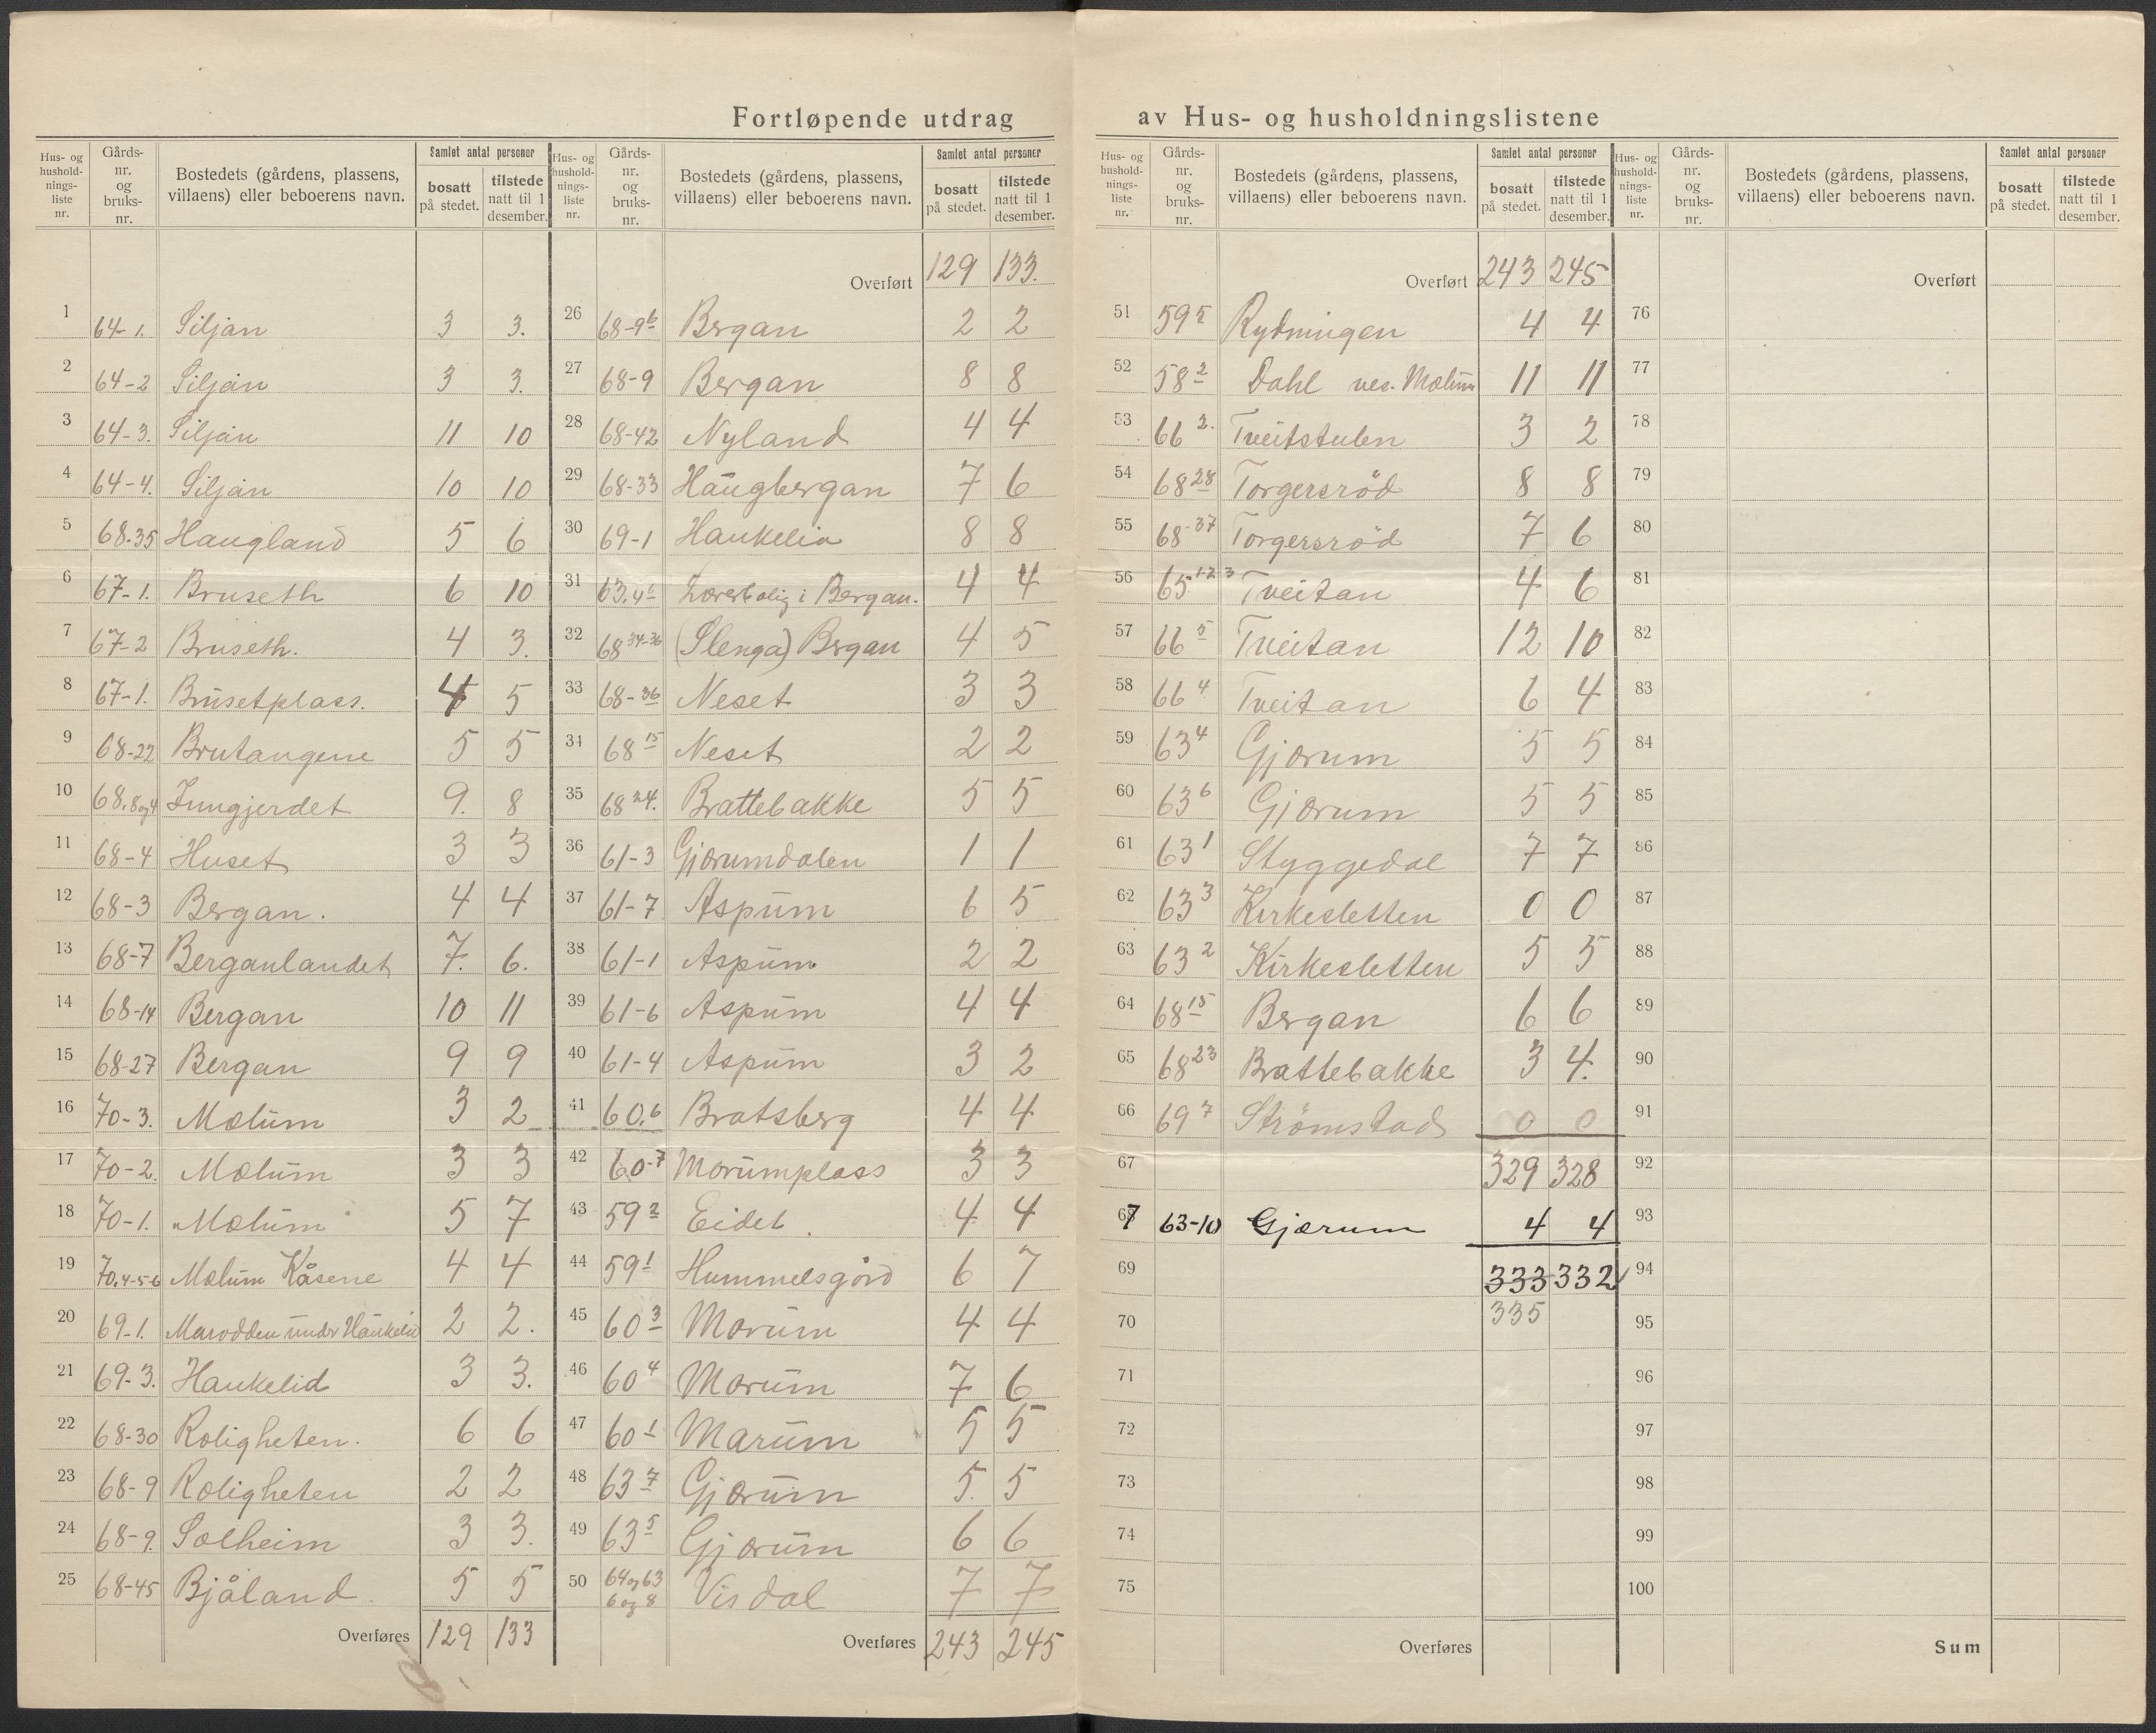 Fortløpende utdrag av Hus- og husholdningslistene
Hus- og hushold-nings-liste nr. Gårds-nr. og bruks-nr. Bostedets (gårdens, plassens, villaens) eller beboerens navn. Samlet antal personer bosatt på stedet. tilstede natt til 1 desember.
1 64-1. Siljan 3 3.
2 64-2 Siljan 3 3.
3 64-3. Siljan 11 10
4 64-4. Siljan 10 10
5 68.35 Haugland 5 6
6 67-1. Bruseth 6 10
7 67-2 Bruseth. 4 3.
8 67-1. Brusetplass. 4 5
9 68-22 Brutangene 5 5
10 68.8og4 Inngjerdet 9. 8
11 68-4 Huset 3 3
12 68-3 Bergan. 4 4
13 68-7 Berganlandet 7. 6.
14 68-14 Bergan 10 11
15 68-27 Bergan 9 9
16 70-3. Mælum 3 2
17 70-2. Mælum 3 3
18 70-1. Mælum 5 7
19 70.4-5-6 Mælum Kåsene 4 4
20 69-1. Marodden under Haukelid 2 2.
21 69-3. Haukelid 3 3.
22 68-30 Roligheten. 6 6
23 68-9 Roligheten 2 2
24 68-9. Solheim 3 3.
25 68-45 Bjåland. 5 5
Overføres 129 133
Hus- og hushold-nings-liste nr. Gårds-nr. og bruks-nr. Bostedets (gårdens, plassens, villaens) eller beboerens navn. Samlet antal personer bosatt på stedet. tilstede natt til 1 desember.
Overført 129 133.
26 68-9b Bergan 2 2
27 68-9 Bergan 8 8
28 68-42 Nyland 4 4
29 68-33 Haugbergan 7 6
30 69-1 Haukelia 8 8
31 63.4 Lærerbolig i Bergan. 4 4
32 68 34-36 (Slenga) Bergan 4 5
33 68-36 Neset 3 3
34 68 15 Neset 2 2
35 68 24. Brattebakke 5 5
36 61-3 Gjærumdalen 1 1
37 61-7 Aspum 6 5
38 61-1 Aspum 2 2
39 61-6 Aspum 4 4
40 61-4 Aspum 3 2
41 60.6 Bratsberg 4 4
42 60-7 Mørumplass 3 3
43 59 2 Eidet. 4 4
44 59 1 Hummelsgård 6 7
45 60 3 Mørum 4 4
46 60 4 Mørum 7 6
47 60 1 Mårum 5 5
48 63 7 Gjærum 5. 5
49 63 5 Gjærum 6 6
50 64og63 6og8 Visdal 7 7
Overføres 243 245
Hus- og hushold-nings-liste nr. Gårds-nr. og bruks-nr. Bostedets (gårdens, plassens, villaens) eller beboerens navn. Samlet antal personer bosatt på stedet. tilstede natt til 1 desember.
Overført 243 245
51 59 5 Rydningen 4 4
52 58 2 Dahl ves. Mælum 11 11
53 66 2. Tveitstulen 3 2
54 68 28 Torgersrød 8 8
55 68-37 Torgersrød 7 6
56 65 1-2-3 Tveitan 4 6
57 66 5 Tveitan 12 10
58 66 4 Tveitan 6 4
59 63 4 Gjærum 5 5
60 63 6 Gjærum 5 5
61 63 1 Styggedal 7 7
62 63 3 Kirkesletten 0 0
63 63 2 Kirkesletten 5 5
64 68 15 Bergan 6 6
65 68 23 Brattebakke 3 4.
66 69 7 Strömstad 0 0
67 329 328
68 7 63-10 Gjærum 4 4
69 333 332
70 335
71
72
73
74
75
Overføres
Hus- og hushold-nings-liste nr. Gårds-nr. og bruks-nr. Bostedets (gårdens, plassens, villaens) eller beboerens navn. Samlet antal personer bosatt på stedet. tilstede natt til 1 desember.
Overført
76
77
78
79
80
81
82
83
84
85
86
87
88
89
90
91
92
93
94
95
96
97
98
99
100
Sum